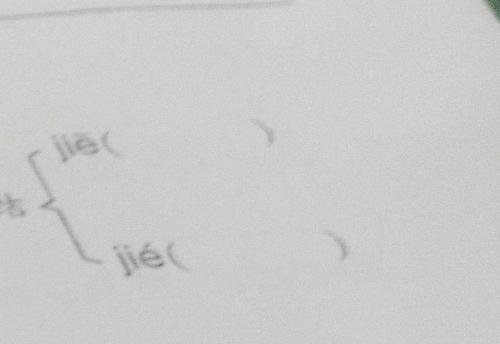 jiē( )
jié( )